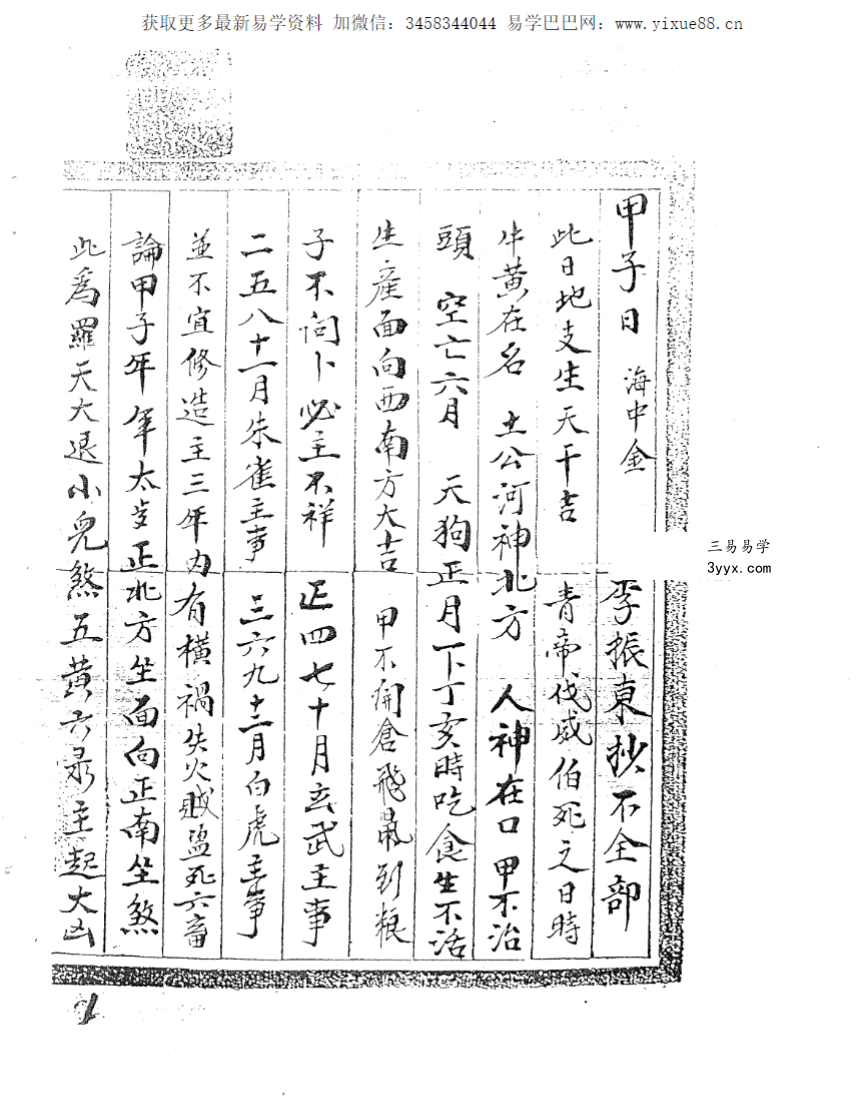 获取更多最新易学资料 加微信：3458344044 易学巴巴网：www.yixue88.cn
甲子日 海中金 李振東抄不全部
此日地支生天干吉 青帝伐威伯死之日時
牛黄在名 土公河神北方 人神在口 甲不治
頭 空亡六月 天狗正月下丁亥時吃食生不活
生產面向西南方大吉 甲不開倉飛鼠到粮
子不问卜必主不祥 正四七十月玄武主事
二五八十一月朱雀主事 三六九十二月白虎主事
並不宜修造主三年内有橫禍失火贼盗死六畜
論甲子年年太岁正北方坐面向正南坐煞
此爲羅天大退小兒煞五黄六录主起大凶
三易易学
3yyx.com
1